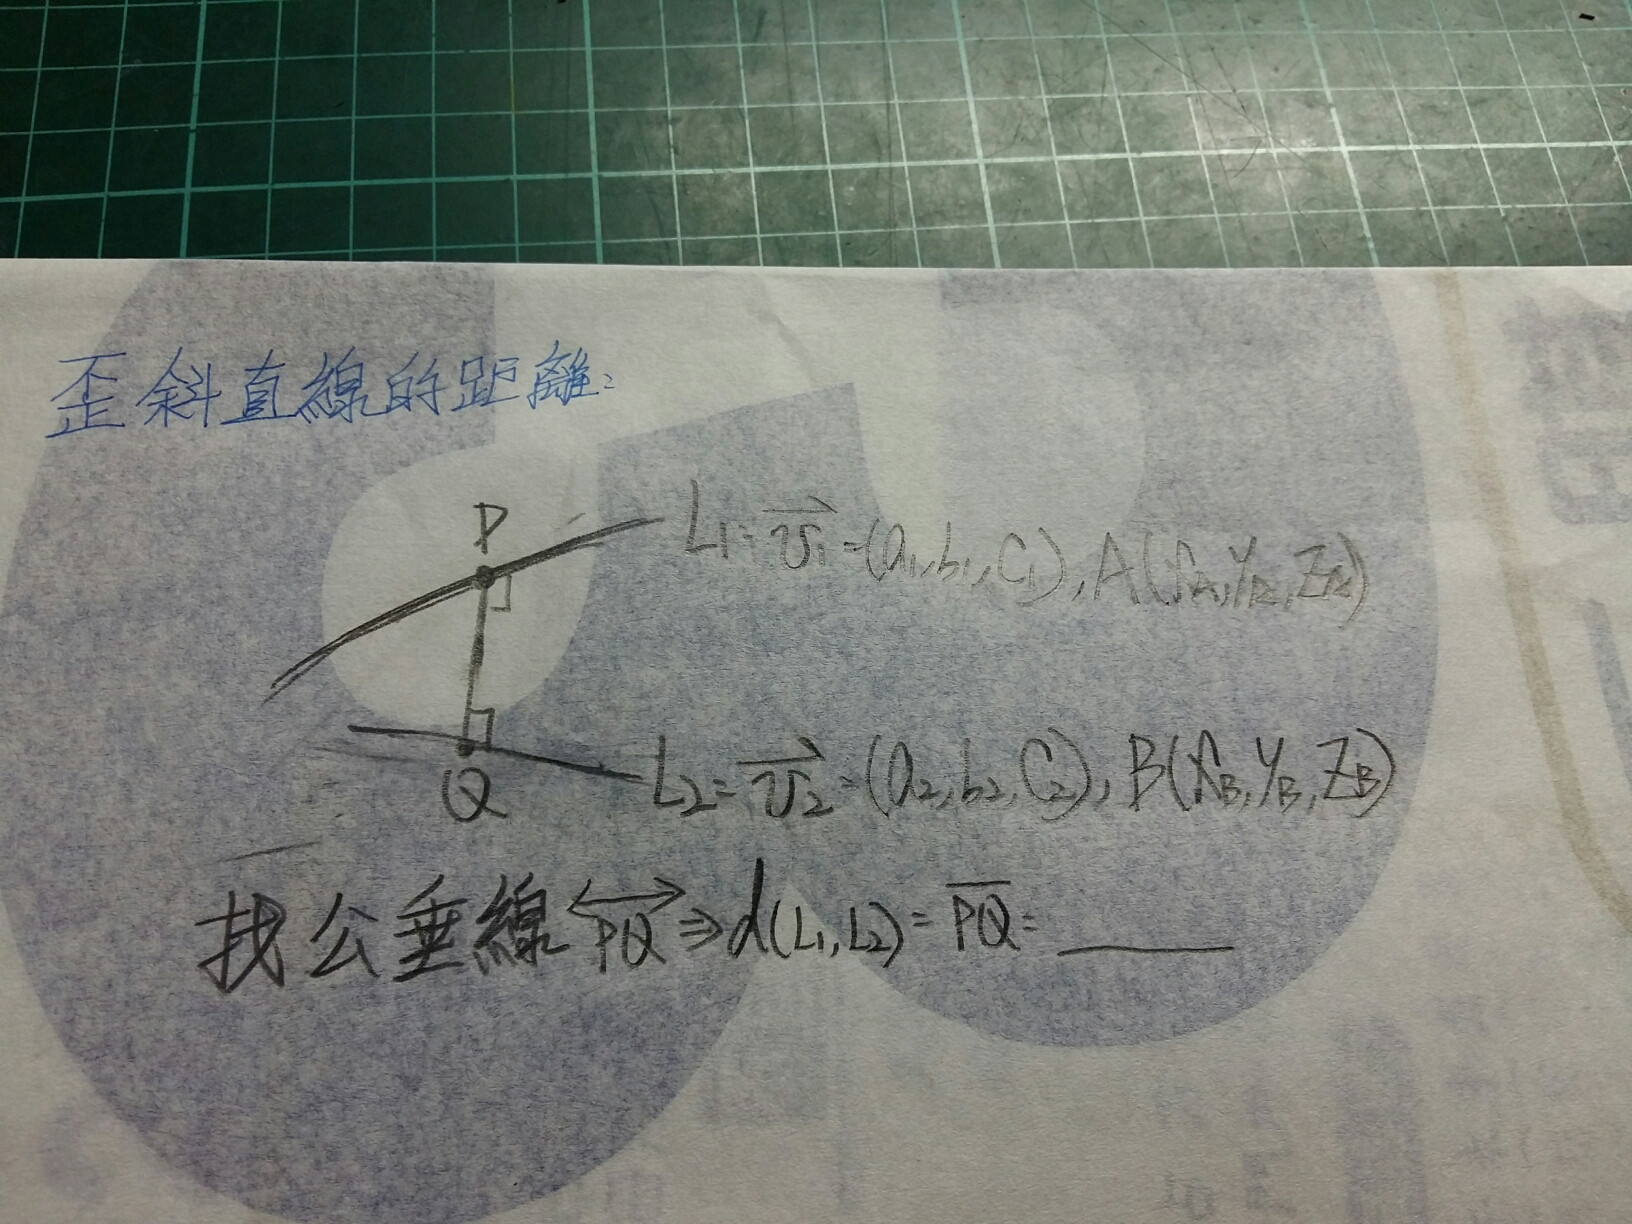 歪斜直線的距離:
P
L₁: v₁⃗=(a₁,b₁,c₁),A(x_A,y_A,z_A)
Q
L₂: v₂⃗=(a₂,b₂,c₂),B(x_B,y_B,z_B)
找公垂線 PQ ⇒ d(L₁,L₂) = PQ = ______